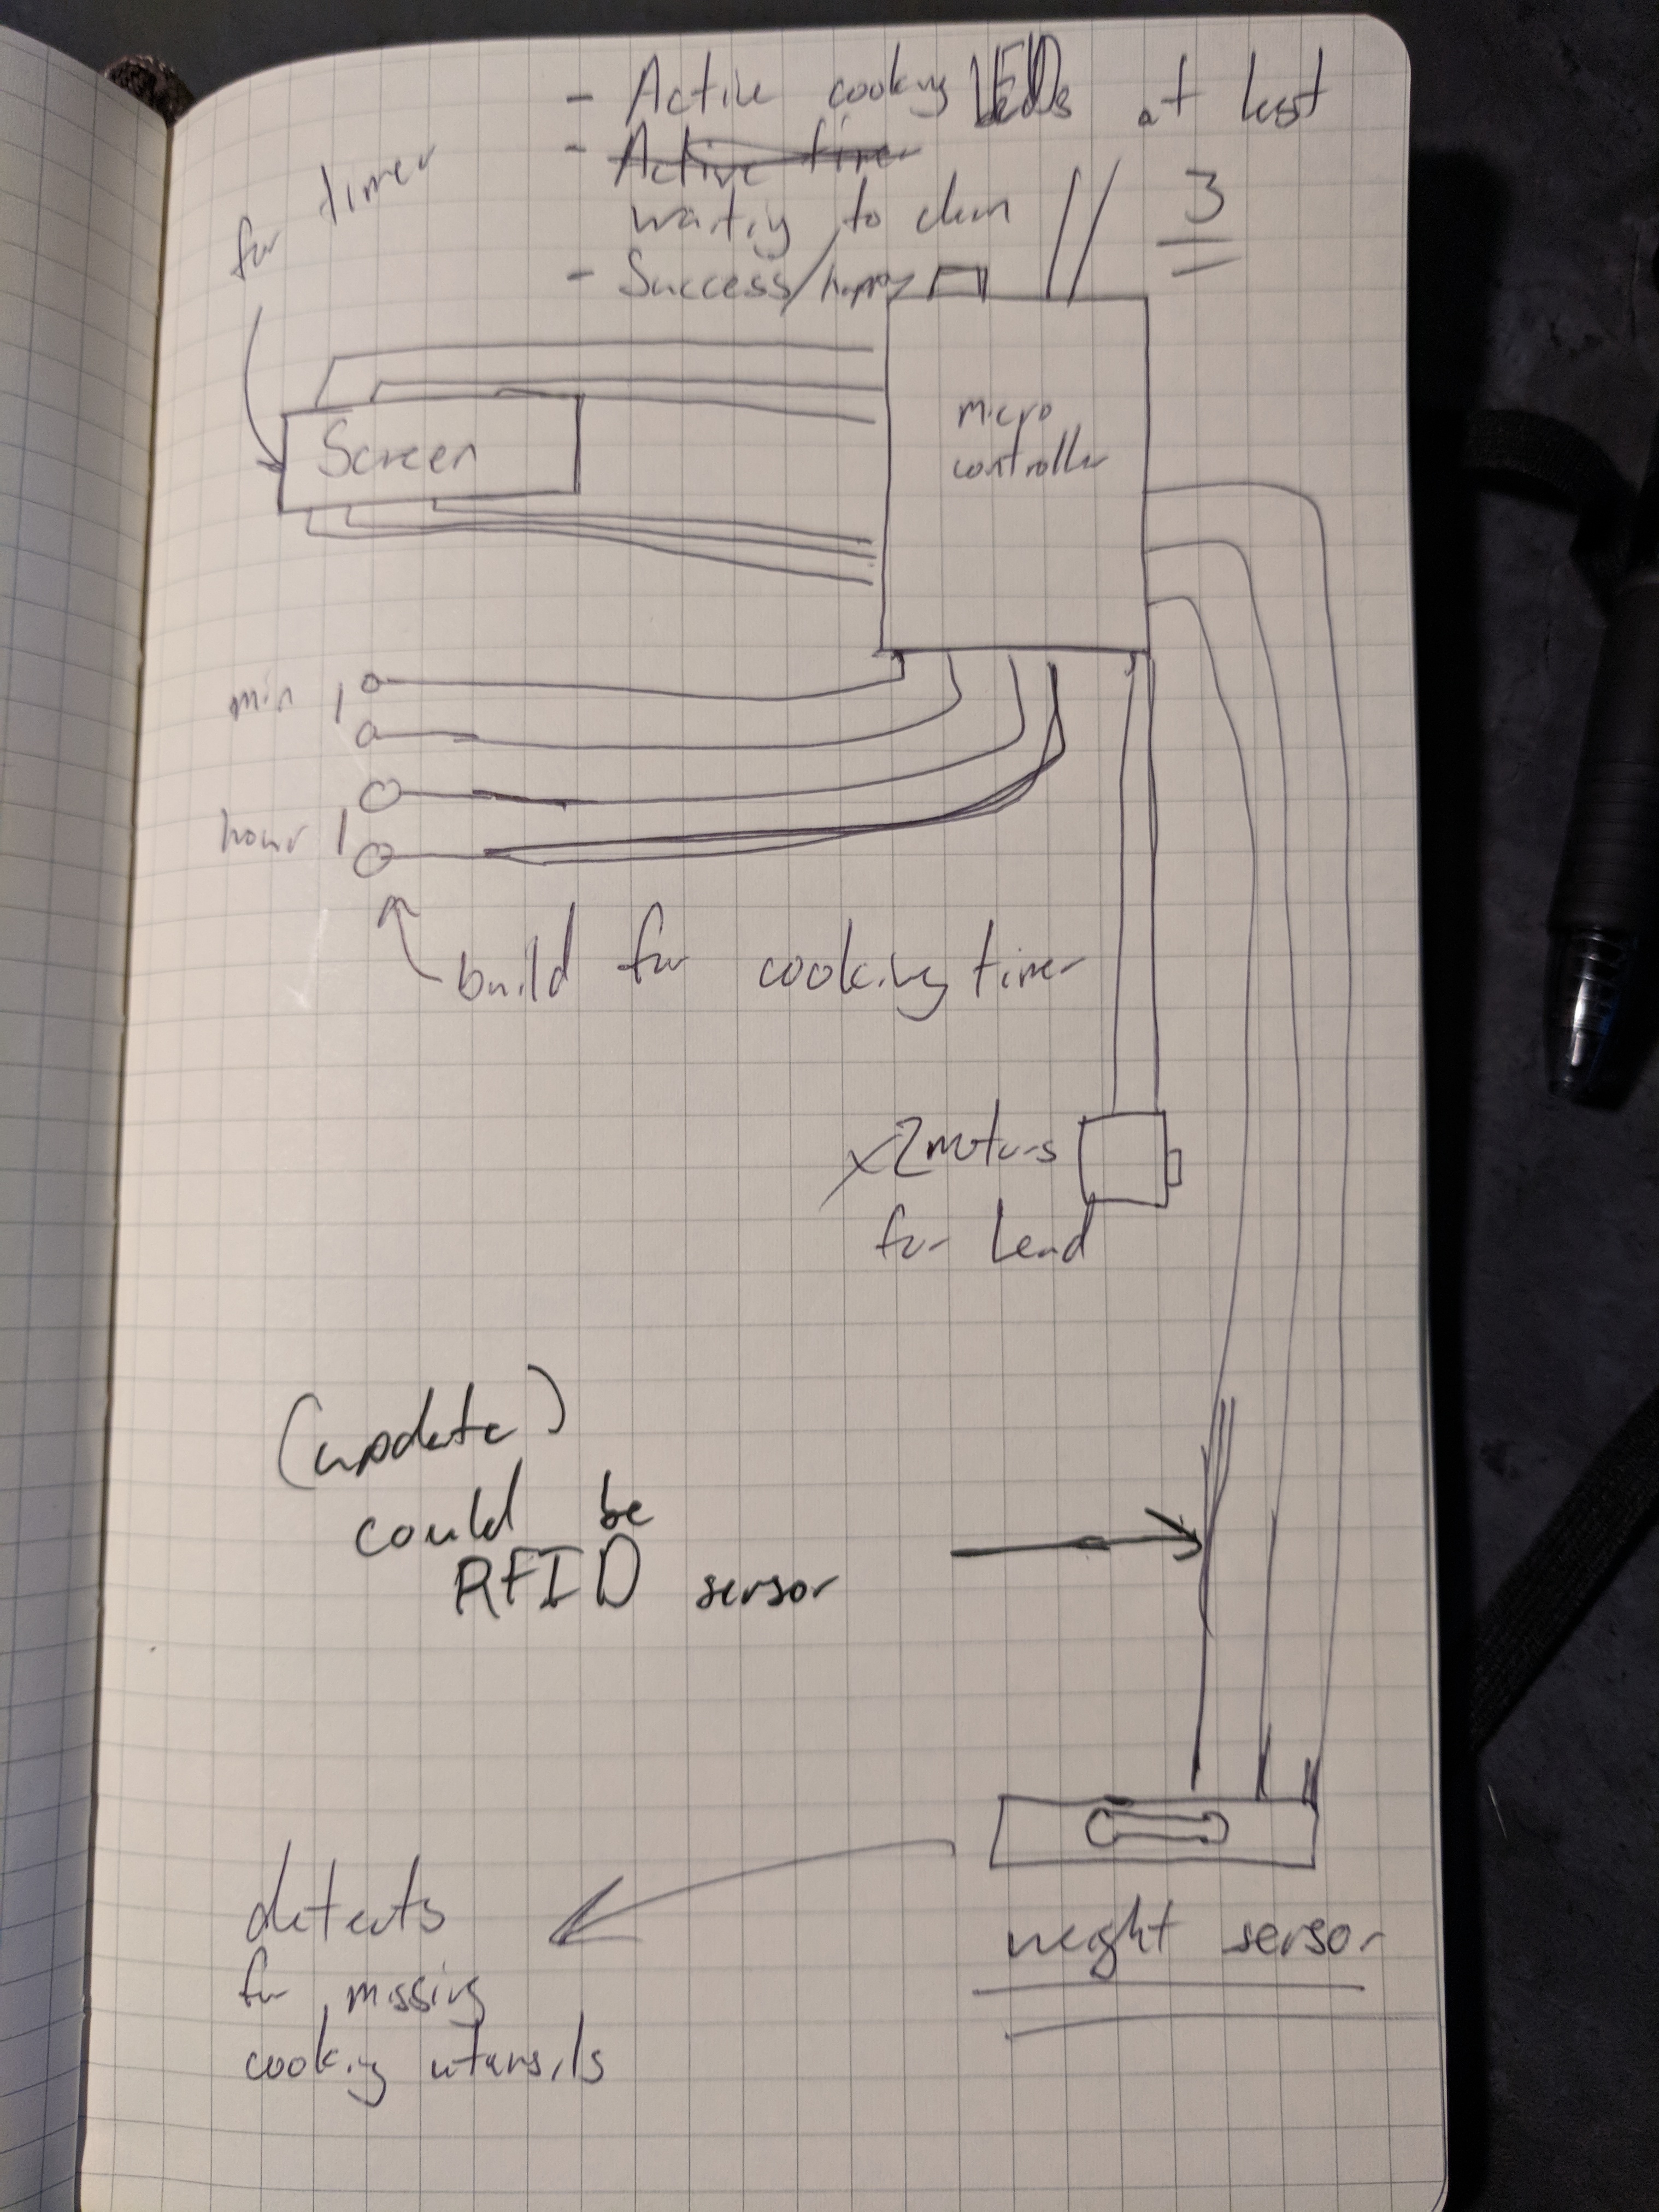 - Active cooking LEDs at least
3
- Active timer
waiting to clean
- Success/happy
for timer
Screen
micro
controller
min
hour
build for cooking timer
x2 motors
for
(update)
could be
RFID sensor
weight sensor
detects
for missing
cooking utensils